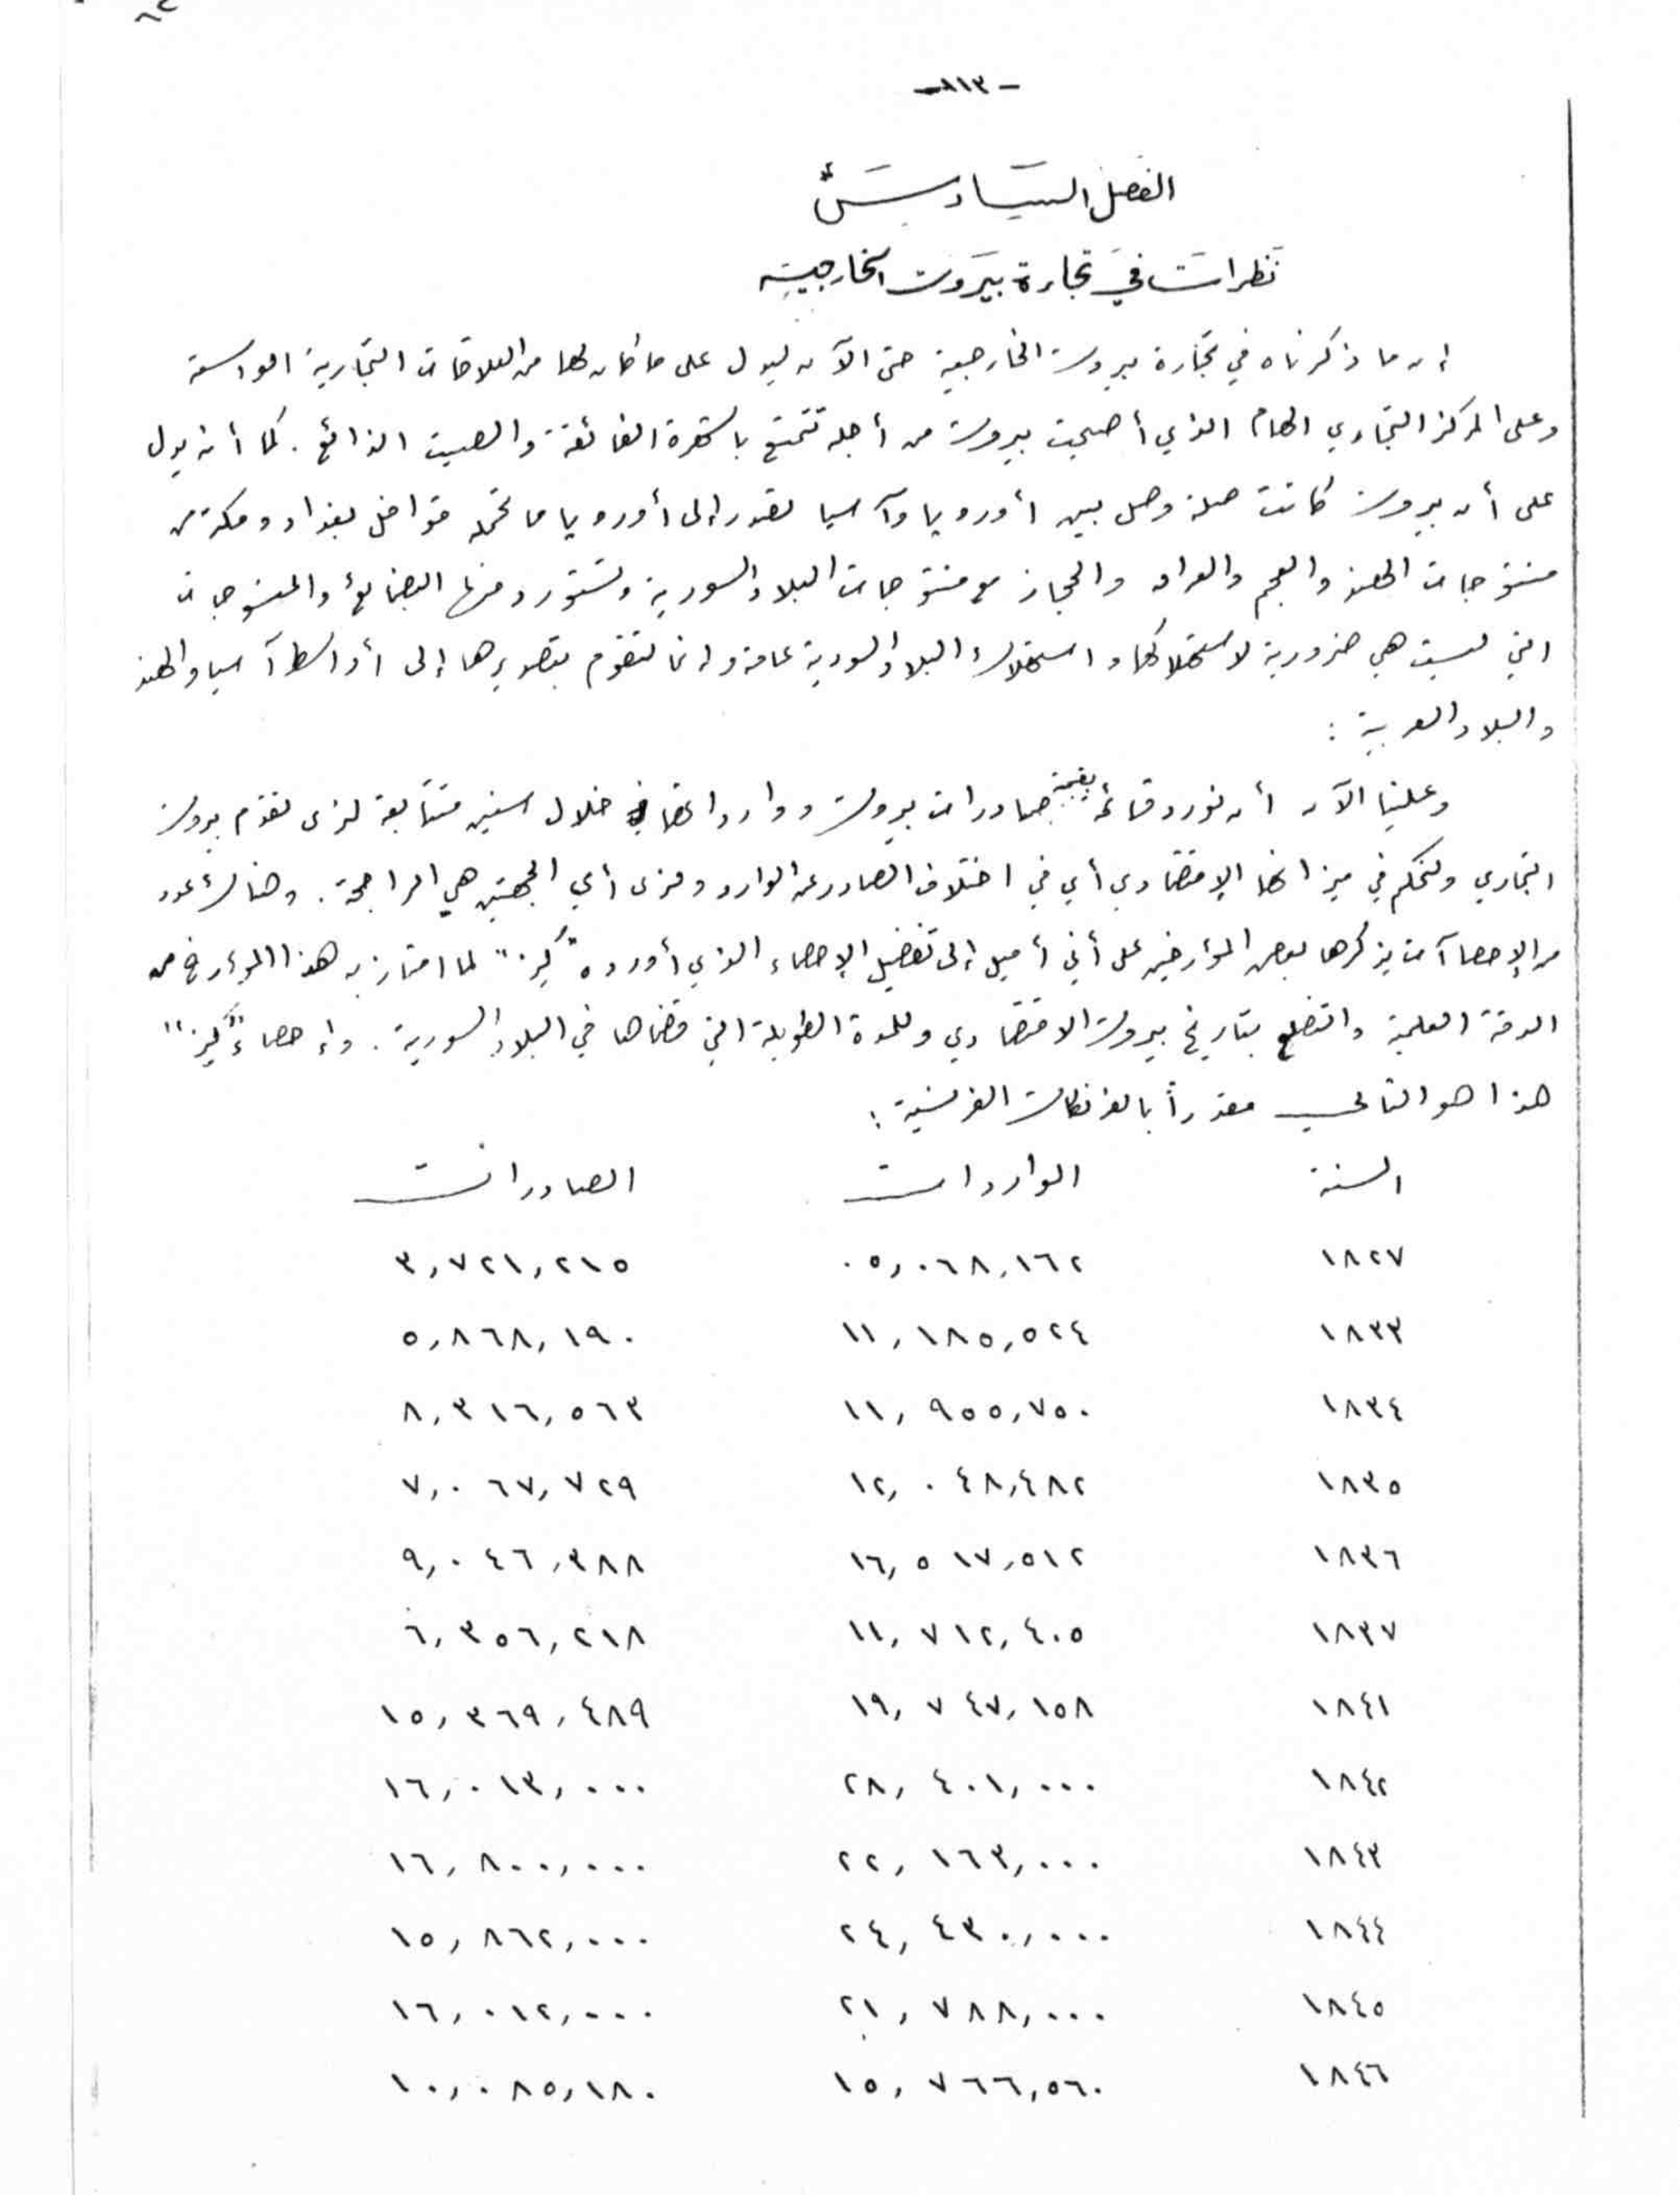 -١١٣-
الفصل السادس
نظرات في تجارة بيروت الخارجية
إن ما ذكرناه في تجارة بيروت الخارجية حتى الآن ليدل على ما كان لها من العلاقات التجارية الواسعة
وعلى المركز التجاري الهام الذي أصبحت بيروت من أجله تتمتع بالشهرة الفائقة والصيت الذائع. كما أنه يدل
على أن بيروت كانت صلة وصل بين أوروبا وآسيا تصدر إلى أوروبا ما تحمله قوافل بغداد ومكة من
منتوجات الهند والعجم والعراق والحجاز مع منتوجات البلاد السورية وتستورد منها البضائع والمنسوجات
التي ليست هي ضرورية لاستهلاكها واستهلاك البلاد السورية عامة وإنما لتقوم بتصديرها إلى أواسط آسيا والهند
والبلاد العربية :
وعلينا الآن أن نورد قائمة بقيمة صادرات بيروت ووارداتها في خلال سنين متتابعة لنرى تقدم بيروت
التجاري ولنحكم في ميزانها الإقتصادي أي في اختلاف الصادر عن الوارد ونرى أي الجهتين هي الراجحة. وهناك عدد
من الإحصاآت يذكرها بعض المؤرخين على أني أميل إلى تفضيل الإحصاء الذي أورده "كيز" لما امتاز به هذا المؤرخ من
الدقة العلمية والتضلع بتاريخ بيروت الاقتصادي وللمدة الطويلة التي قضاها في البلاد السورية. وإحصاء "كيز"
هذا هو التالي مقدراً بالفرنكات الفرنسية :
السنة الواردات الصادرات
١٨٢٧ ٠٥,٠٦٨,١٦٢ ٣,٧٢١,٢١٥
١٨٣٣ ١١,١٨٥,٥٢٤ ٥,٨٦٨,١٩٠
١٨٣٤ ١١,٩٥٥,٧٥٠ ٨,٣١٦,٥٦٣
١٨٣٥ ١٢,٠٤٨,٤٨٢ ٧,٠٦٧,٧٢٩
١٨٣٦ ١٦,٥١٧,٥١٢ ٩,٠٤٦,٣٨٨
١٨٣٧ ١١,٧١٢,٤٠٥ ٦,٣٥٦,٢١٨
١٨٤١ ١٩,٧٤٧,١٥٨ ١٥,٣٦٩,٤٨٩
١٨٤٢ ٢٨,٤٠١,٠٠٠ ١٦,٠١٣,٠٠٠
١٨٤٣ ٢٢,١٦٣,٠٠٠ ١٦,٨٠٠,٠٠٠
١٨٤٤ ٢٤,٤٣٠,٠٠٠ ١٥,٨٦٢,٠٠٠
١٨٤٥ ٢١,٧٨٨,٠٠٠ ١٦,٠١٢,٠٠٠
١٨٤٦ ١٥,٧٦٦,٥٦٠ ١٠,٠٨٥,١٨٠